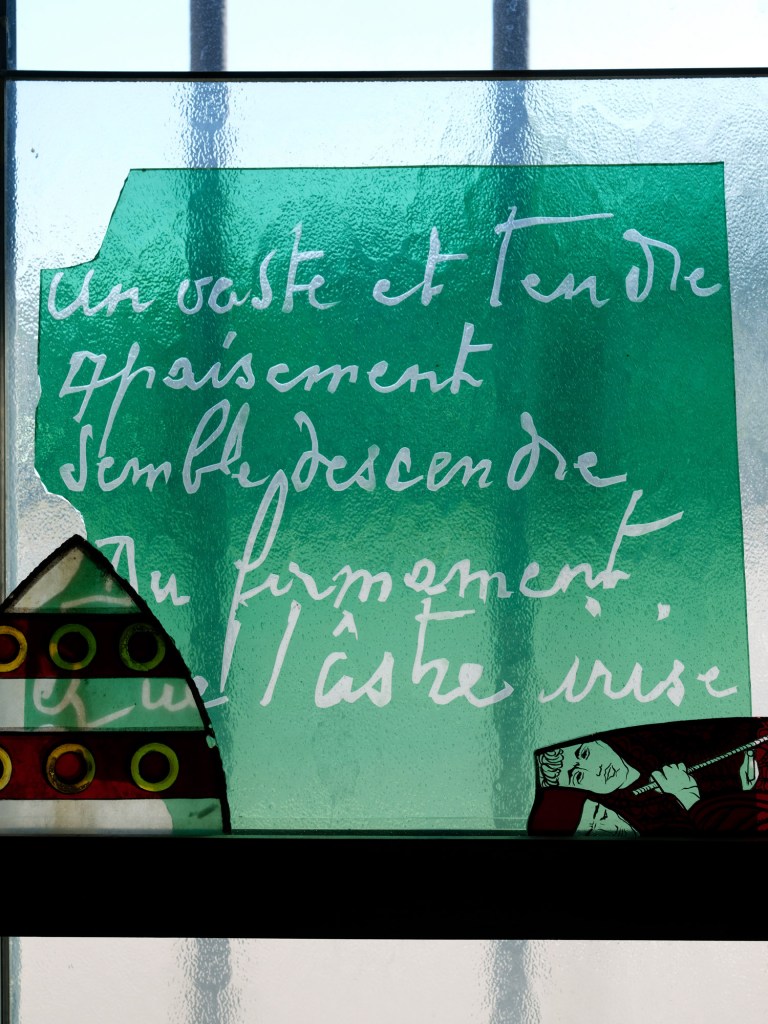 Un vaste et tendre
Apaisement
Semble descendre
Du firmament
que l'âstre irise